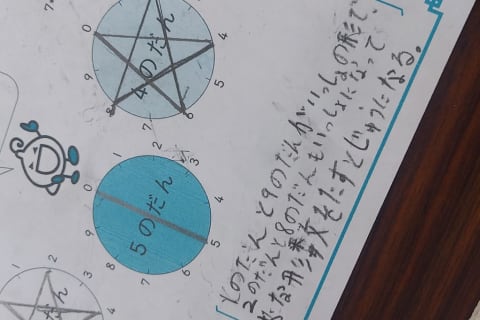 4のだん
0
4
6
7
8
9
5のだん
0
1
2
3
4
5
6
7
8
9
だん
0
1
2
3
1のだんと9のだんがいっしょの形で
2のだんと8のだんもいっしょになって
たすとじゅうになる。